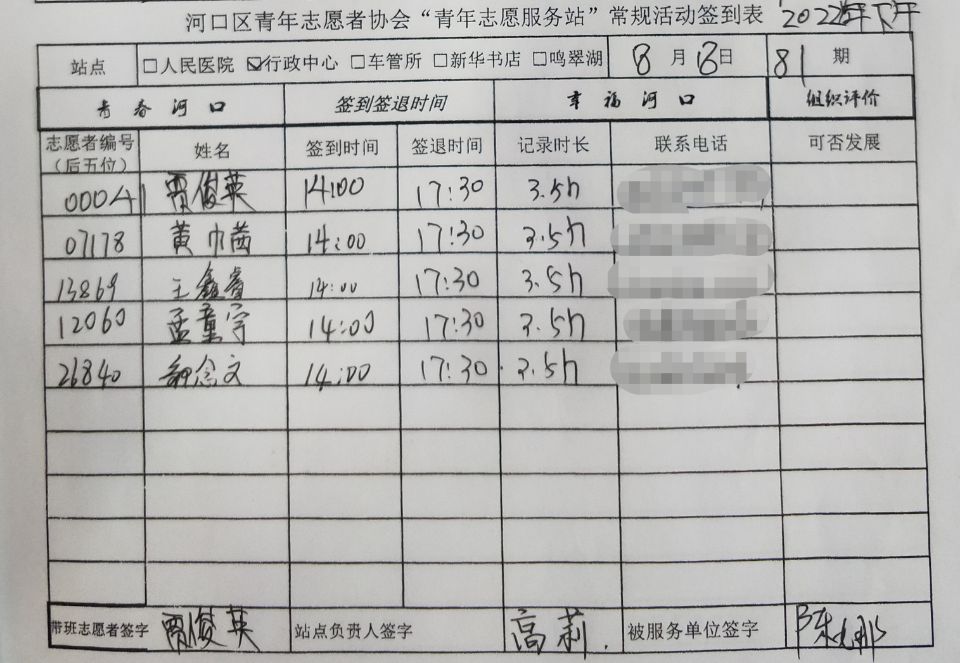 河口区青年志愿者协会“青年志愿服务站”常规活动签到表 2022年下半年
站点 □人民医院 ☑行政中心 □车管所 □新华书店 □鸣翠湖 8月13日 81期
青春河口 签到签退时间 幸福河口 组织评价
志愿者编号（后五位） 姓名 签到时间 签退时间 记录时长 联系电话 可否发展
00041 贾俊英 14:00 17:30 3.5h
07178 黄巾茜 14:00 17:30 3.5h
13869 王鑫睿 14:00 17:30 3.5h
12060 孟童宇 14:00 17:30 3.5h
26840 14:00 17:30 3.5h
带班志愿者签字 贾俊英 站点负责人签字 高莉 被服务单位签字